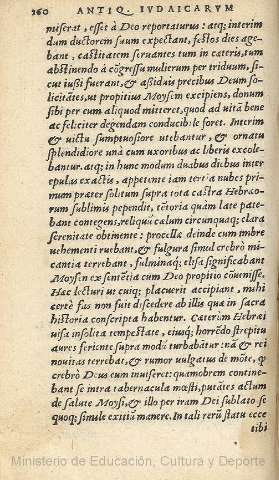 260 ANTIQ. IVDAICARVM
miserat, esset à Deo reportaturus: atq; interim
dum ductorem suum expectant, festos dies age-
bant, castitatem seruantes tum in cæteris, tum
abstinendo à cõgressu mulierum per triduum, si-
cut iussi fuerãt, & aßiduis precibus Deum sol-
licitãtes, ut propitius Moysen excipiens, donum
sibi per eum aliquod mitteret, quod ad uitã bene
ac feliciter degendam conducibile foret. Interim
& uictu sumptuosiore utebantur, & ornatu
splendidiore unà cum uxoribus ac liberis excole-
bantur. atq; in hunc modum duobus diebus inter
epulas exactis, appetente iam tertia nubes primùm
præter solitum supra tota castra Hebræo-
rum sublimis pependit, tẽtoria quàm late pate-
bant contegens, reliquũ cælum circunquaq; clara
serenitate obtinente: procellæ deinde cum imbre
uehementi ruebant, & fulgura simul crebrò mi-
cantia terrebant, fulminaq; elisa significabant
Moysen ex sentẽtia cum Deo propitio cõuenisse.
Hæc lecturi ut cuiq; placuerit accipiant, mihi
certè fas non fuit discedere ab illis quæ in sacra
historia conscripta habentur. Cæterùm Hebræi
uisa insolita tempestate, eiusq; horrẽdo strepitu
aures feriente supra modũ turbabãtur: nã & rei
nouitas terrebat, & rumor uulgatus de mõte, q̃
crebrò Deus eum inuiseret: quamobrem contine-
bant se intra tabernacula mœsti, putãtes actum
de salute Moysi, & illo per iram Dei sublato se
quoq; simile exitiũ manere. In tali rerũ statu ecce
tibi
Ministerio de Educación, Cultura y Deporte